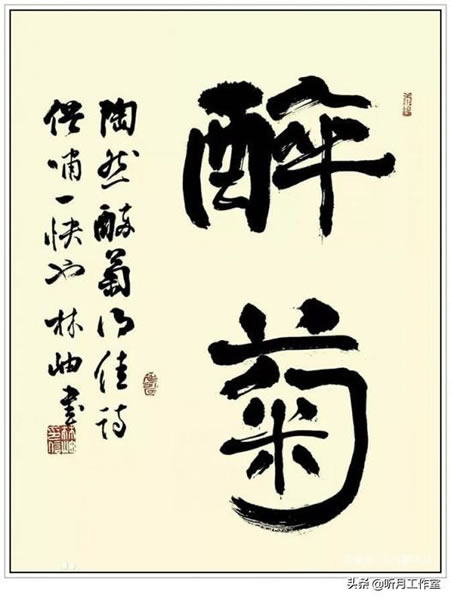 醉菊
陶然醉菊得佳诗
哺一快也 林岫書
头条 @听月工作室